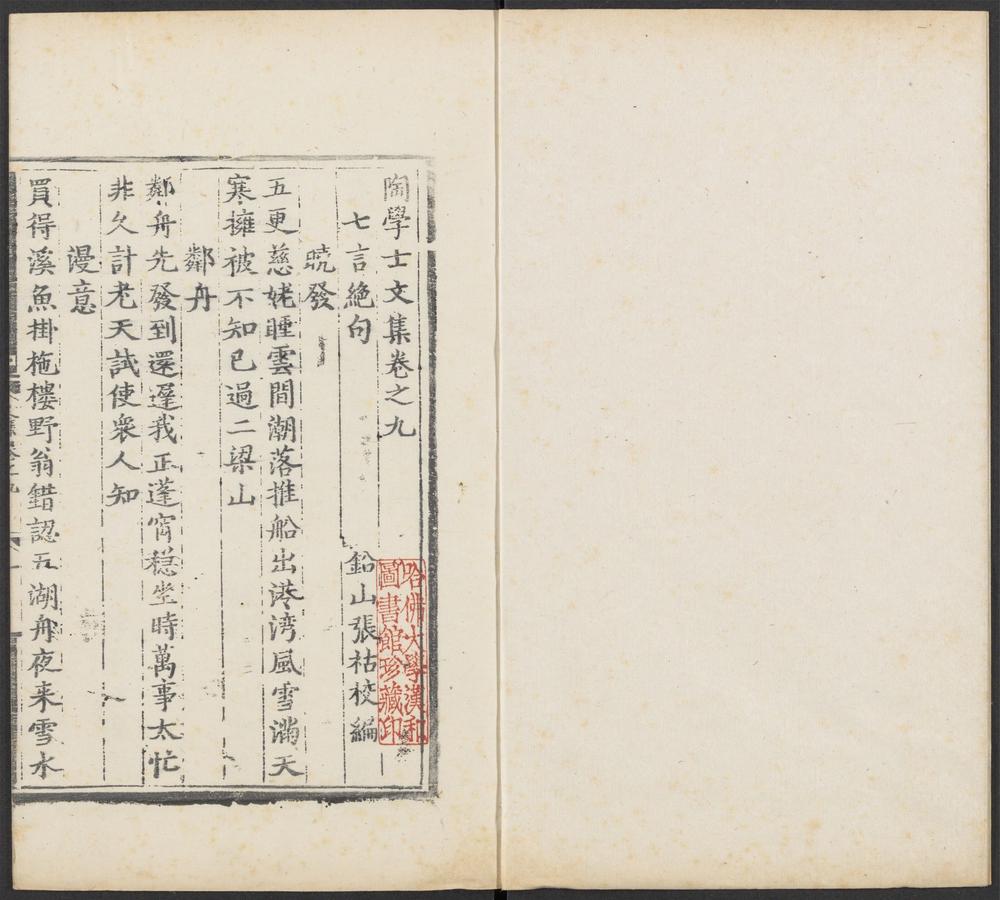 陶學士文集卷之九
七言絶句
鉛山張祐校編
曉發
五更慈姥睡雲間潮落推船出港湾風雪滿天
寒擁被不知已過二梁山
鄰舟
鄰舟先發到還遲我正蓬窗穏坐時萬事太忙
非久計老天試使衆人知
謾意
買得溪魚掛柂樓野翁錯認五湖舟夜来雪水
哈佛大學漢和
圖書館珍藏印